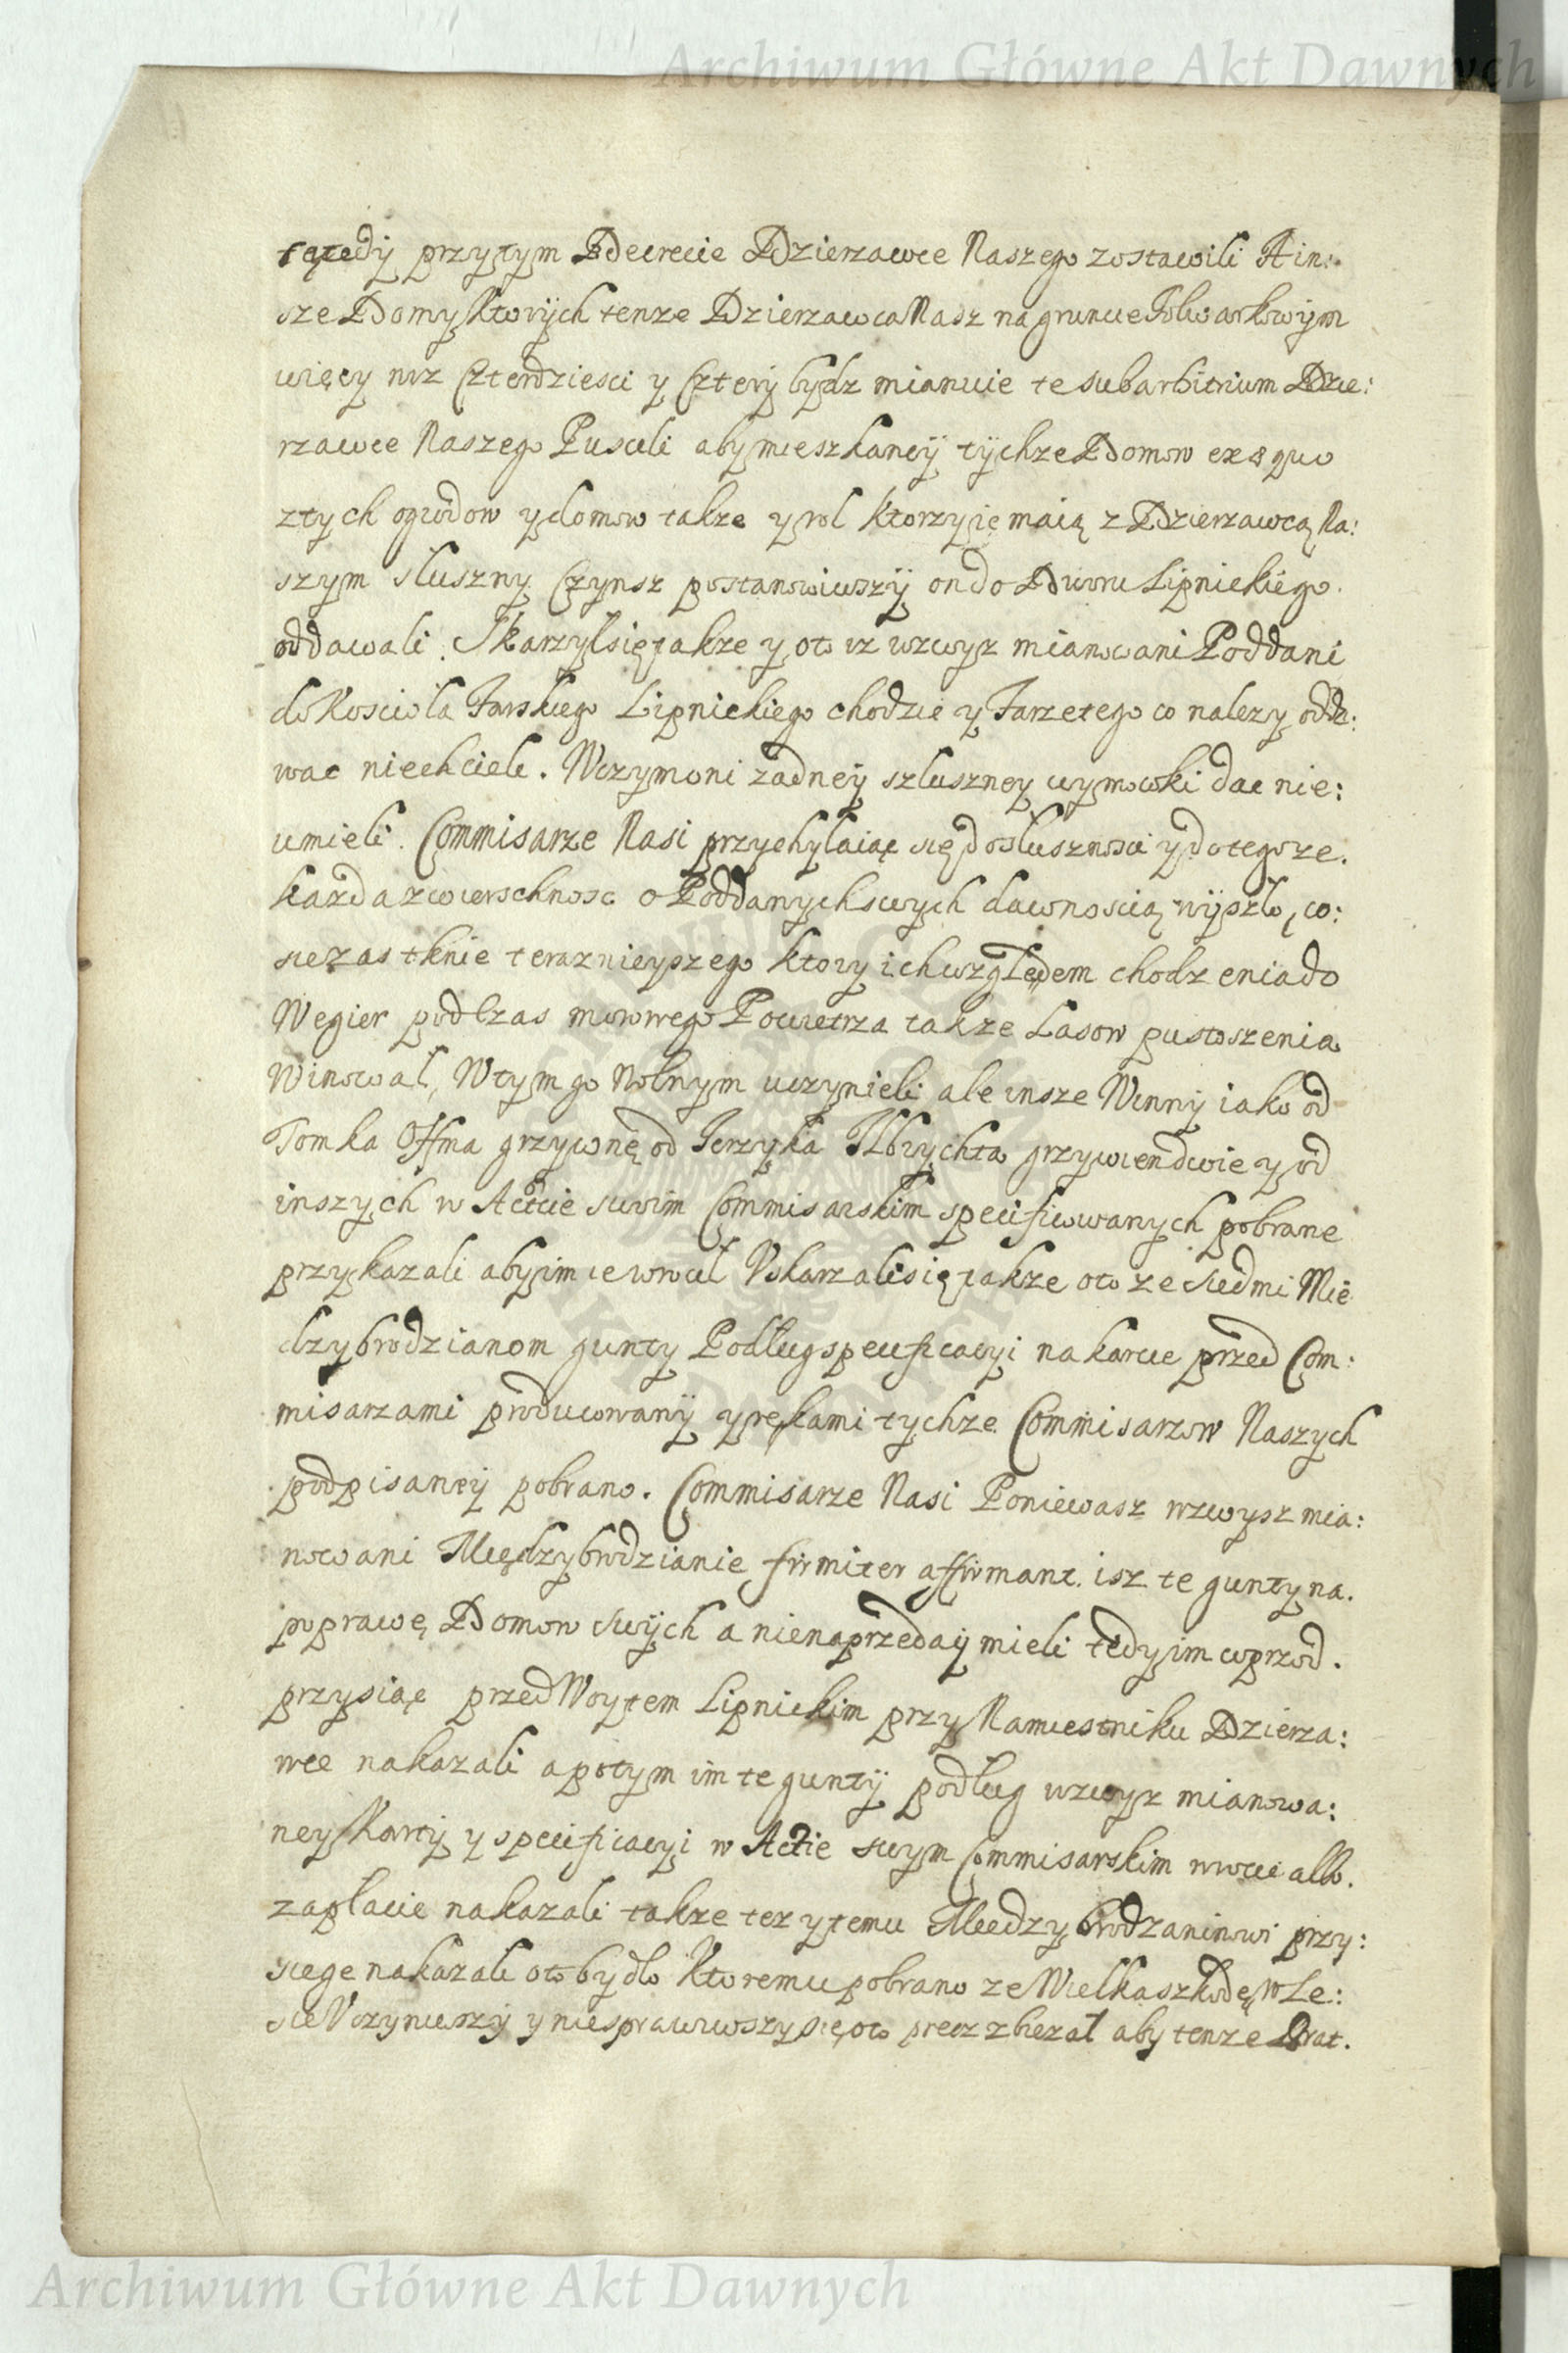 Archiwum Główne Akt Dawnych
tętedÿ przytym Ddecrecie Dzierzawce Naszego zostawili A in:
sze Domy Ktorÿch tenze Dzierzawca Nasz na gruncie Folwarkowÿm
więcy nisz Czterdziesci y Czterÿ bydz mianuie te sub arbitrium Dzie:
rzawce Naszego Puscili aby mieszkancÿ tÿchze Domow ex æquo
z tych ogrodow y domow takze y rol ktorzy ię maią z Dzierzawcą Na:
szym sluszny Czynsz postanowiwszÿ on do Dworu Lipnickiego
oddawali. Skarzyl się takze y oto iz wzwyz mianowani Poddani
do Kosciola Farskiego Lipnickiego chodzic y Farze tego co nalezy odda:
wac niechcieli. Wczym oni zadneÿ szluszney wymowki dac nie:
umieli. Commisarze Nasi przychylaiąc się do slusznosci y do tego ze
kazda zwierschnosc o Poddanych swych dawnoscią wÿszlo, co:
sie zas tknie teraznieyszego ktory ich względem chodzenia do
Wegier podczas morowego Powietrza takze Lasow pustoszenia
Winowal, W tym go Wolnym uczynieli ale insze Winnÿ iako od
Tomka Offma grzywnę od Jerzyka Olbrychta grzywien dwie y od
inszych w Actcie swoim Commisarskim specificowanych pobrane
przykazali aby im ie wrocil Uskarzali się takze oto ze siedmi Mie
dzybrodzianom gunty Podlug specificacyi na karcie przed Com:
misarzami producowanÿ y rękami tychze Commisarzow Naszych
podpisaneÿ pobrano. Commisarze Nasi Poniewasz wzwysz mia:
nowani Międzybrodzianie firmiter affirmant isz te gunty na
poprawę Domow swÿch a nie na przedaÿ mieli tedy im wprzod
przysiąc przed Woytem Lipnickim przy Namiestniku Dzierza:
wce nakazali a potym im te guntÿ podlug wzwyz mianowa:
ney Kartÿ y specificacyi w Actie swym Commisarskim wrocic albo
zaplacic nakazali takze tez y temu Miedzybrodzaninowi przy:
siege nakazali oto bydlo Ktoremu pobrano ze Wielka szkodę w Le:
sie Uczyniwszÿ y nie sprawiwszy się oto precz zbiezal aby tenze Brat.
Archiwum Główne Akt Dawnych